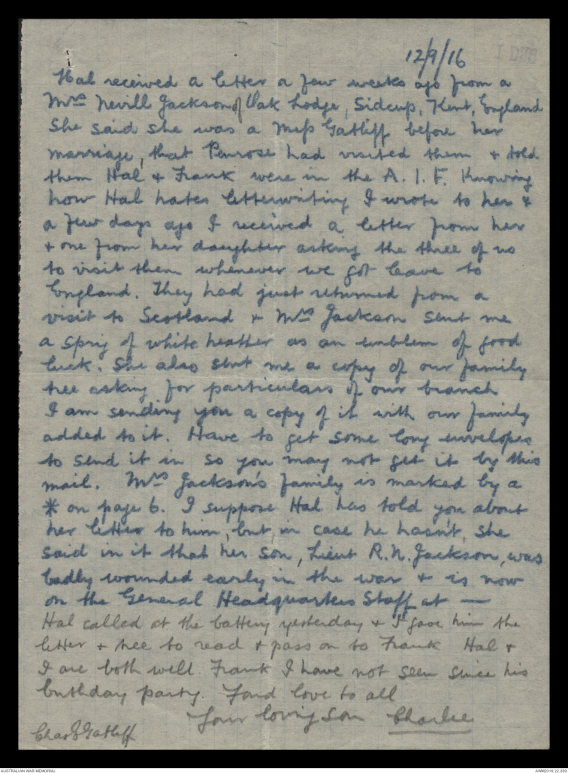 12/9/16
Hal received a letter a few weeks ago from a
Mrs Nevill Jackson of Oak Lodge, Sidcup, Kent, England
She said she was a Miss Gatliff before her
marriage, that Penrose had visited them & told
them Hal & Frank were in the A.I.F. Knowing
how Hal hates letterwriting I wrote to her &
a few days ago I received a letter from her
& one from her daughter asking the three of us
to visit them whenever we got leave to
England. They had just returned from a
visit to Scotland & Mrs Jackson sent me
a sprig of white heather as an emblem of good
luck. She also sent me a copy of our family
tree asking for particulars of our branch
I am sending you a copy of it with our family
added to it. Have to get some long envelopes
to send it in so you may not get it by this
mail. Mrs Jackson's family is marked by a
* on page 6. I suppose Hal has told you about
her letter to him, but in case he hasn't, she
said in it that her son, Lieut R.N. Jackson, was
badly wounded early in the war & is now
on the General Headquarters Staff at —
Hal called at the battery yesterday & I gave him the
letter & tree to read & pass on to Frank Hal &
I are both well. Frank I have not seen since his
birthday party. Fond love to all
Your loving son Charlie
Chas Gatliff
AUSTRALIAN WAR MEMORIAL